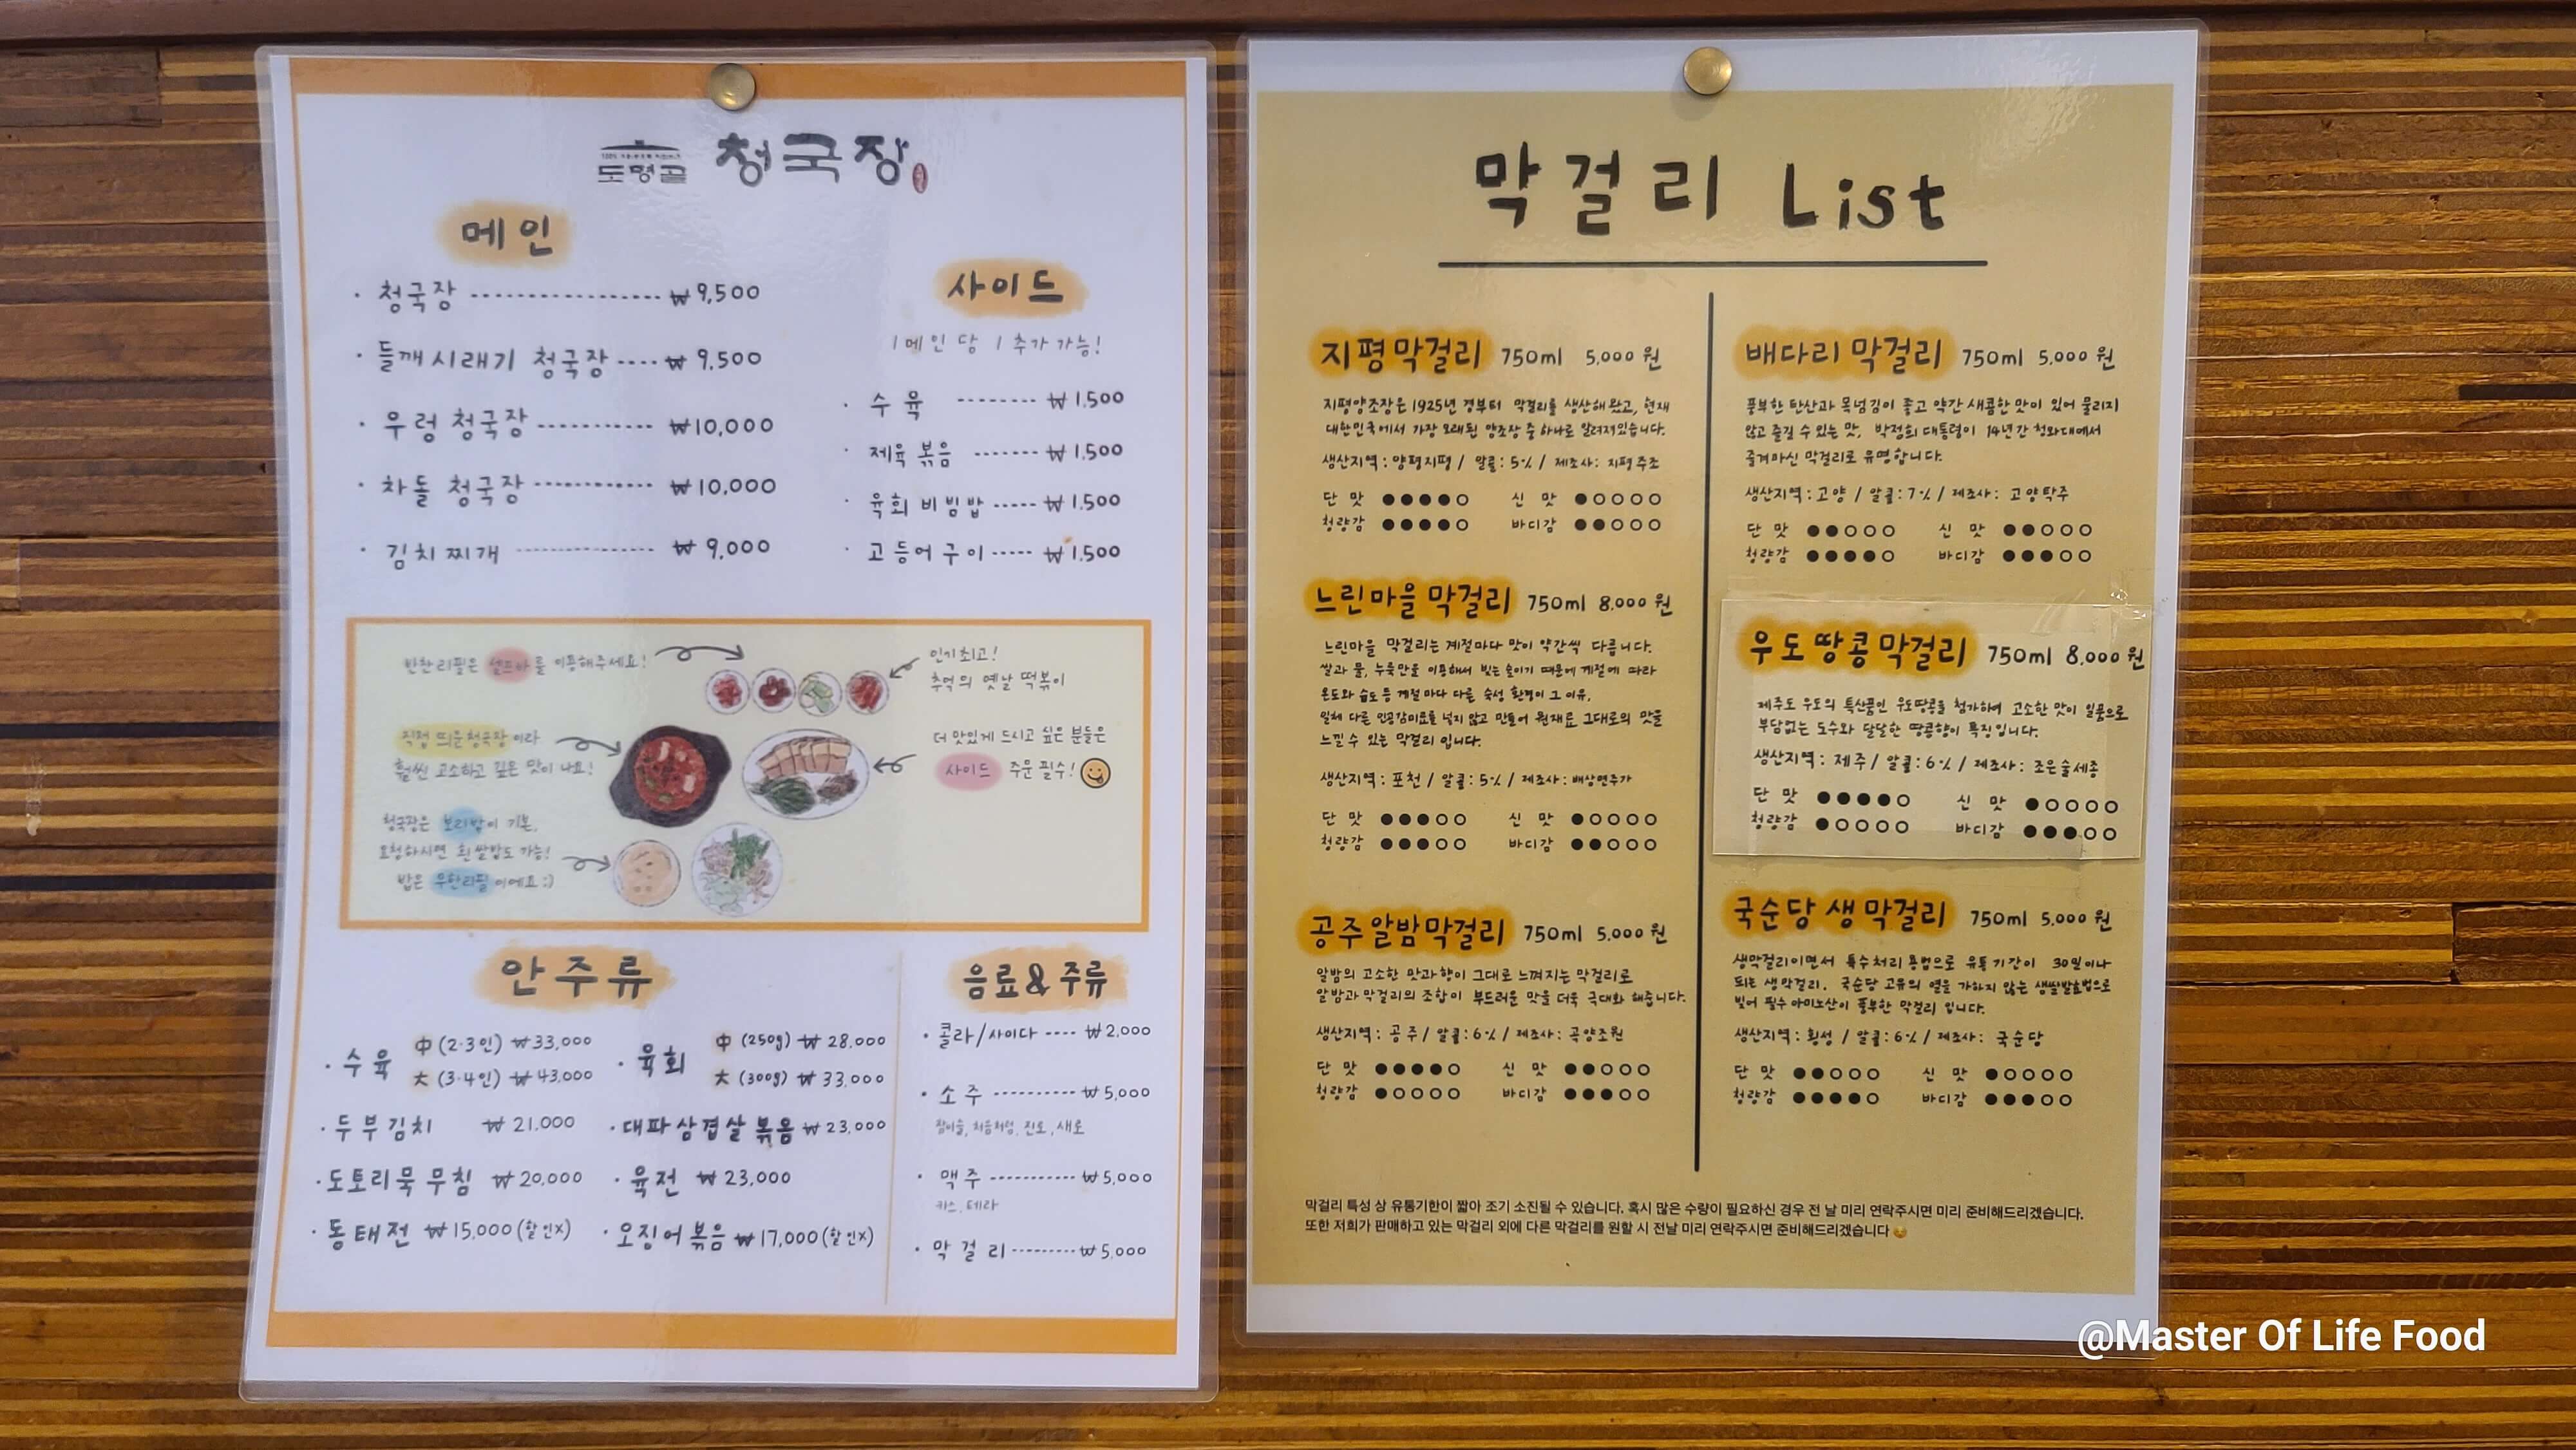 도명골 청국장
메인
· 청국장 ₩9,500
· 들깨시래기 청국장 ₩9,500
· 우렁 청국장 ₩10,000
· 차돌 청국장 ₩10,000
· 김치찌개 ₩9,000
사이드
1메인당 1추가 가능!
· 수육 ₩1.500
· 제육볶음 ₩1.500
· 육회비빔밥 ₩1.500
· 고등어구이 ₩1.500
반찬리필은 셀프바를 이용해주세요!
인기최고!
추억의 옛날 떡볶이
직접 띄운청국장이라
훨씬 고소하고 깊은 맛이 나요!
더 맛있게 드시고 싶은 분들은
사이드 주문 필수!
청국장은 보리밥이 기본,
요청하시면 흰쌀밥도 가능!
밥은 무한리필이에요:)
안주류
· 수육 中 (2·3인) ₩33,000
大 (3·4인) ₩43,000
· 육회 中 (250g) ₩28.000
大 (300g) ₩33.000
· 두부김치 ₩21.000
· 대파삼겹살볶음 ₩23,000
· 도토리묵무침 ₩20,000
· 육전 ₩23,000
· 동태전 ₩15,000(할인X)
· 오징어볶음 ₩17,000(할인X)
음료&주류
· 콜라/사이다 ₩2,000
· 소주 ₩5,000
참이슬, 처음처럼, 진로, 새로
· 맥주 ₩5,000
카스, 테라
· 막걸리 ₩5,000
막걸리 List
지평막걸리 750ml 5,000원
지평양조장은 1925년 경부터 막걸리를 생산해 왔고, 현재
대한민국에서 가장 오래된 양조장 중 하나로 알려져있습니다.
생산지역 : 양평지평 / 알콜 : 5% / 제조사 : 지평주조
단맛 ●●●●○ 신맛 ●○○○○
청량감 ●●●●○ 바디감 ●●○○○
느린마을막걸리 750ml 8,000원
느린마을 막걸리는 계절마다 맛이 약간씩 다릅니다.
쌀과 물, 누룩만을 이용해서 빚는 술이기 때문에 계절에 따라
온도와 습도 등 계절마다 다른 숙성 환경이 그 이유.
일체 다른 인공감미료를 넣지 않고 만들어 원재료 그대로의 맛을
느낄 수 있는 막걸리 입니다.
생산지역 : 포천 / 알콜 : 5% / 제조사 : 배상면주가
단맛 ●●●○○ 신맛 ●○○○○
청량감 ●●●○○ 바디감 ●●○○○
공주알밤막걸리 750ml 5,000원
알밤의 고소한 맛과향이 그대로 느껴지는 막걸리로
알밤과 막걸리의 조합이 부드러운 맛을 더욱 극대화 해줍니다.
생산지역 : 공주 / 알콜 : 6% / 제조사 : 곡양조원
단맛 ●●●●○ 신맛 ●●○○○
청량감 ●○○○○ 바디감 ●●●○○
배다리막걸리 750ml 5,000원
풍부한 탄산과 목넘김이 좋고 약간 새콤한 맛이 있어 물리지
않고 즐길 수 있는 맛, 박정희 대통령이 14년간 청와대에서
즐겨마신 막걸리로 유명합니다.
생산지역 : 고양 / 알콜 : 7% / 제조사 : 고양탁주
단맛 ●●○○○ 신맛 ●●○○○
청량감 ●●●●○ 바디감 ●●●○○
우도땅콩막걸리 750ml 8,000원
제주도 우도의 특산품인 우도땅콩을 첨가하여 고소한 맛이 일품으로
부담없는 도수와 달달한 땅콩향이 특징입니다.
생산지역 : 제주 / 알콜 : 6% / 제조사 : 조은술세종
단맛 ●●●●○ 신맛 ●○○○○
청량감 ●○○○○ 바디감 ●●●○○
국순당생막걸리 750ml 5,000원
생막걸리이면서 특수처리 용법으로 유통기간이 30일이나
되는 생막걸리. 국순당 고유의 열을 가하지 않는 생쌀발효법으로
빚어 필수 아미노산이 풍부한 막걸리 입니다.
생산지역 : 횡성 / 알콜 : 6% / 제조사 : 국순당
단맛 ●●○○○ 신맛 ●○○○○
청량감 ●●●●○ 바디감 ●●●○○
막걸리 특성 상 유통기한이 짧아 조기 소진될 수 있습니다. 혹시 많은 수량이 필요하신 경우 전 날 미리 연락주시면 미리 준비해드리겠습니다.
또한 저희가 판매하고 있는 막걸리 외에 다른 막걸리를 원할 시 전날 미리 연락주시면 준비해드리겠습니다
@Master Of Life Food